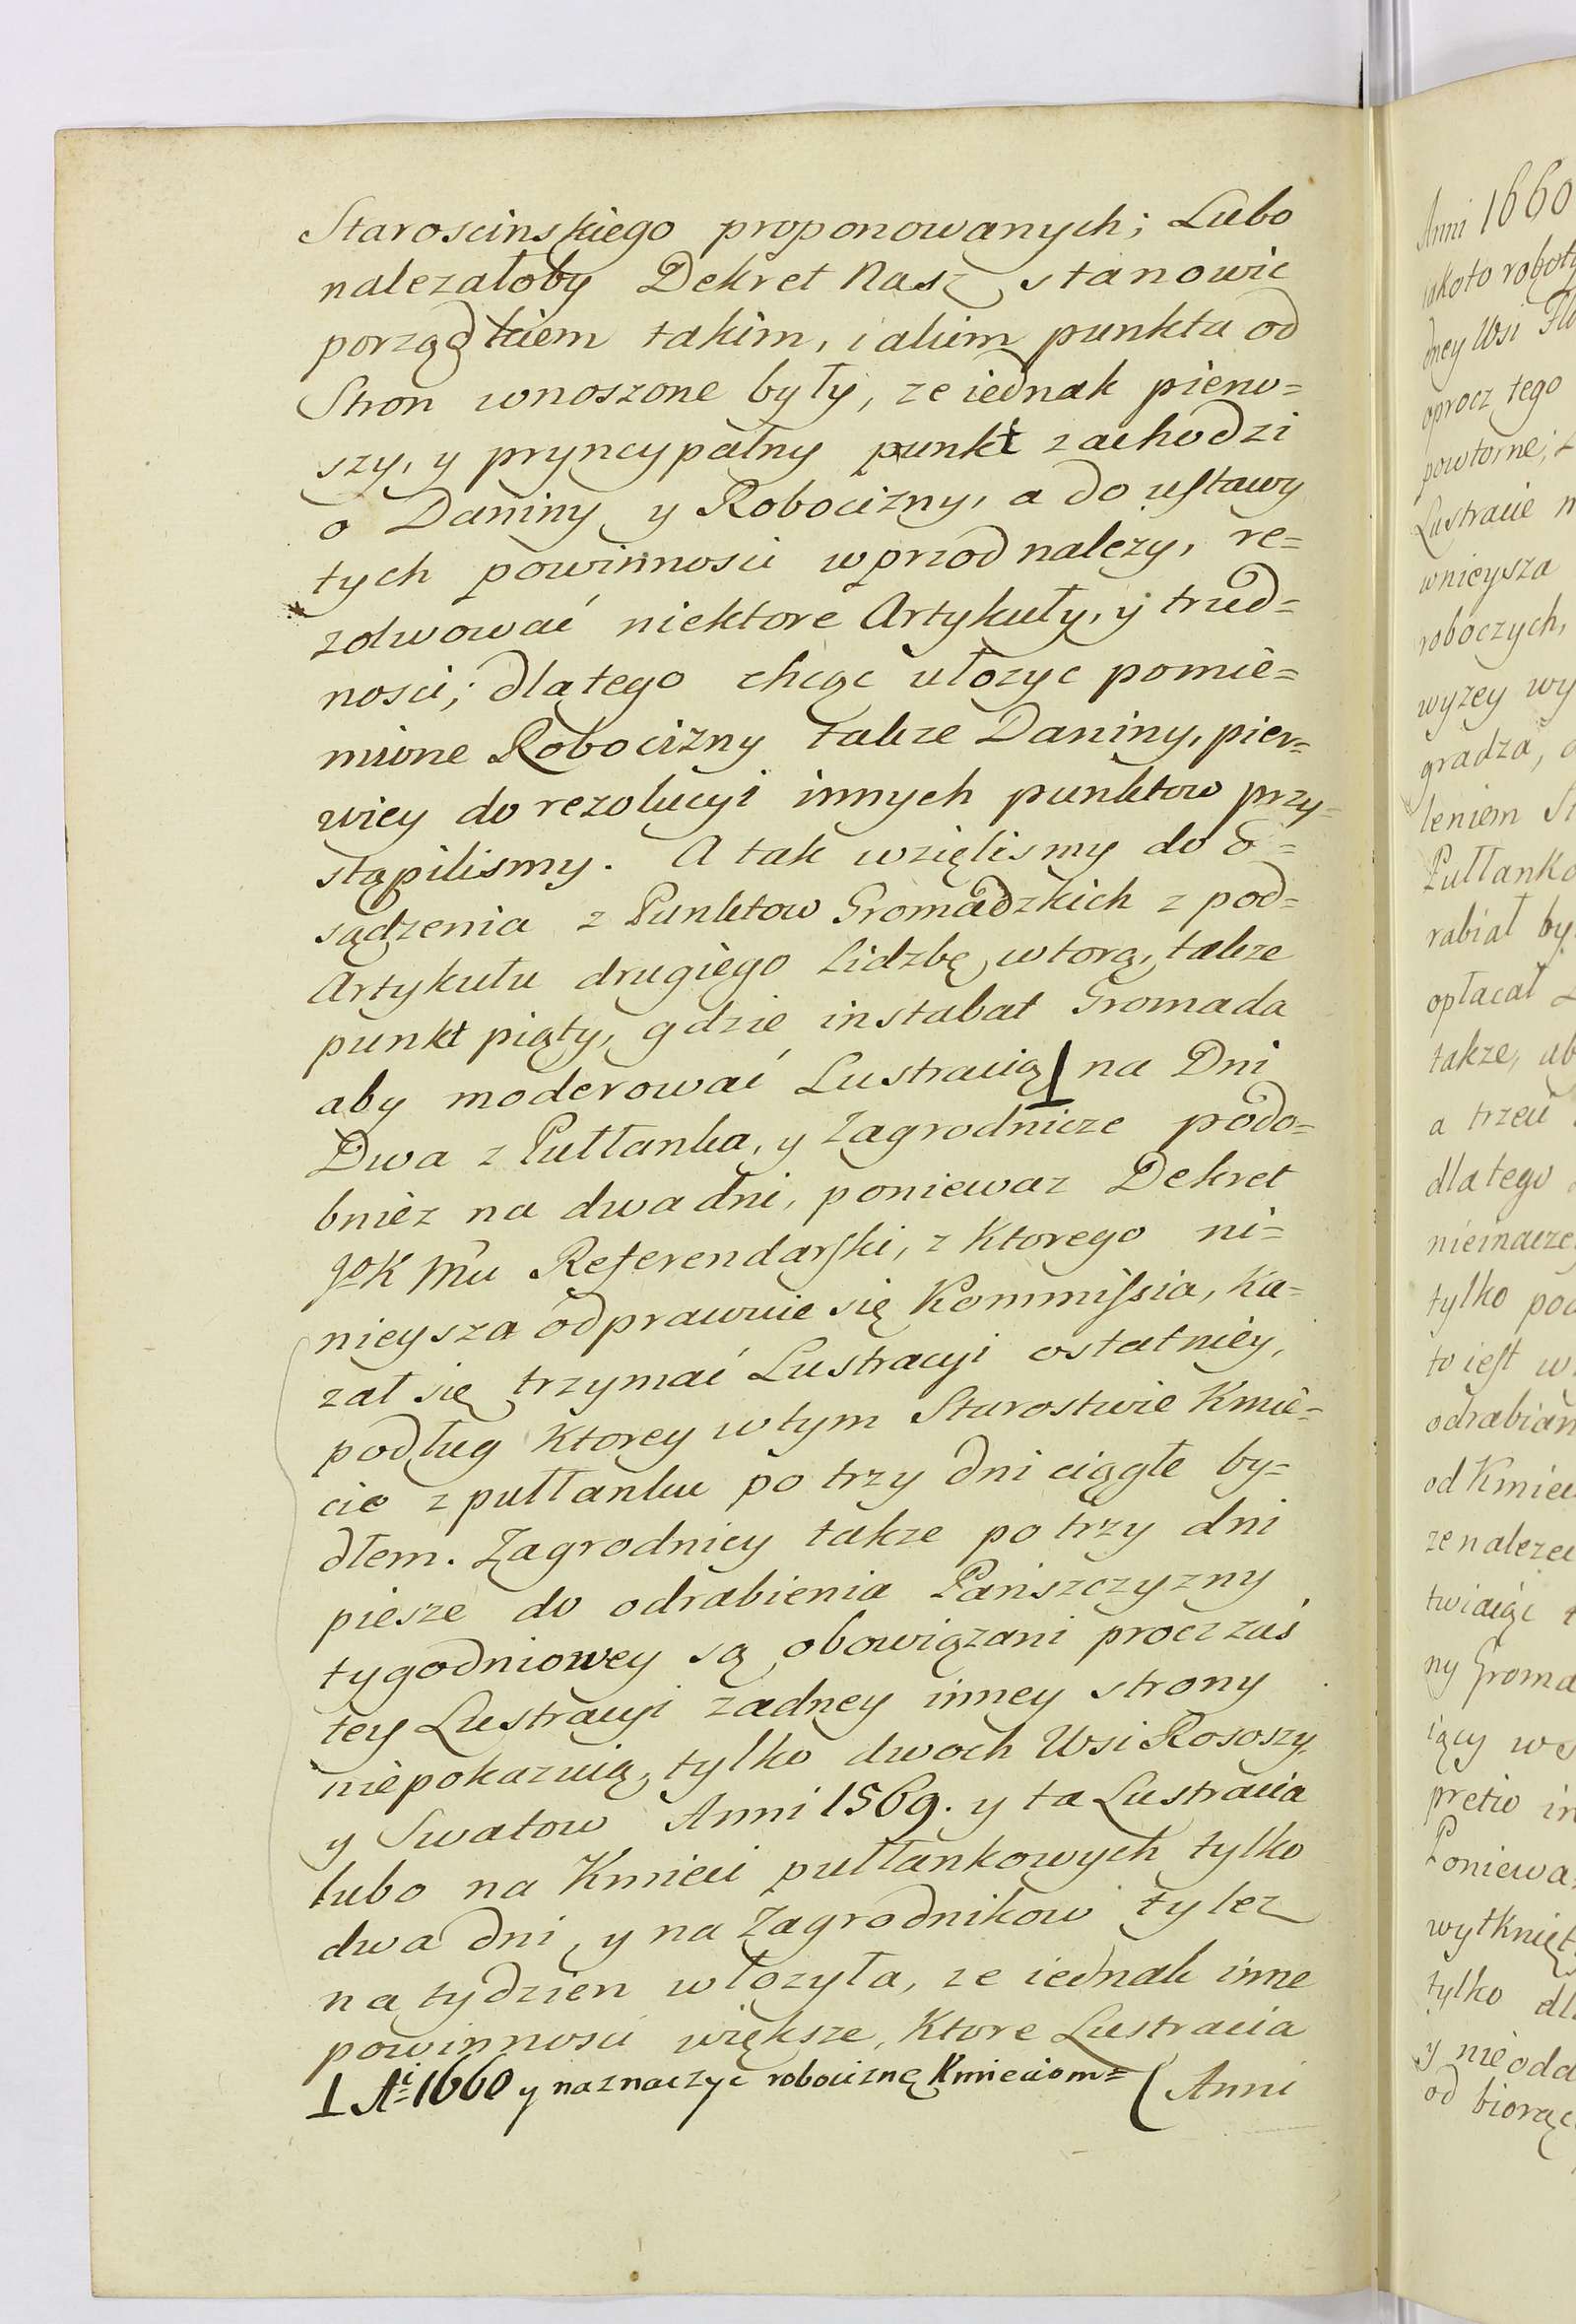 Staroscinskiego proponowanych; Lubo
nalezałoby Dekret Nasz stanowic
porządkiem takim, iakim punkta od
Stron wnoszone były, ze iednak pierw=
szy, y pryncypalny punkt zachodzi
o Daniny y Robocizny, a do ustawy
tych powinnosci wprzod nalezy, re=
zolwować niektore Artykuły, y trud=
nosci; dlatego chcąc ułozyc pomie=
nione Robocizny takze Daniny, pier=
wiey do rezolucyi innych punktow przy=
stąpilismy. A tak wzięlismy do o=
sądzenia z Punktow Gromadzkich z pod=
Artykułu drugiego Lidzbę wtorą, takze
punkt piąty, gdzie instabat Gromada
aby moderować Lustracią⊥ na Dni
Dwa z Pułłanka, y Zagrodnicze podo=
bniez na dwa dni, poniewaz Dekret
JoK Mci Referendarski, z Ktorego ni=
nieysza odprawuie się Kommissia, Ka=
zał się trzymać Lustracyi ostatniey,
podług Ktorey w tym Starostwie Kmie=
cie z pułłanku po trzy dni ciągłe by=
dłem. Zagrodnicy takze po trzy dni
piesze do odrabienia Pańszczyzny
tygodniowey są obowiązani procz zaś
tey Lustracyi zadney inney strony
niepokazuią, tylko dwoch Wsi Rososzy,
y Swatow Anni 1569. y ta Lustracia
lubo na Kmieci pułłankowych tylko
dwa dni, y na Zagrodnikow tylez
na tydzien włozyła, ze iednak inne
powinnosci większe, Ktore Lustracia
⊥ Ai 1660 y naznaczyc robociznę Kmieciom= ( Anni
Anni 1660
iakoto roboty
dney Wsi
oprocz tego
powtorne;
Lustracie
wnieysza
roboczych,
wyzey wy
gradza,
leniem
Pułłanko
rabiał by
opłacał
takze,
a trzeci
dlatego
nieinaczey
tylko pod
to iest w
odrabian
od Kmiec
ze nalezec
twiaiąc
ny Groma
iący we
pretio in
Poniewa
wytknięt
tylko dl
y nie oda
od biorąc